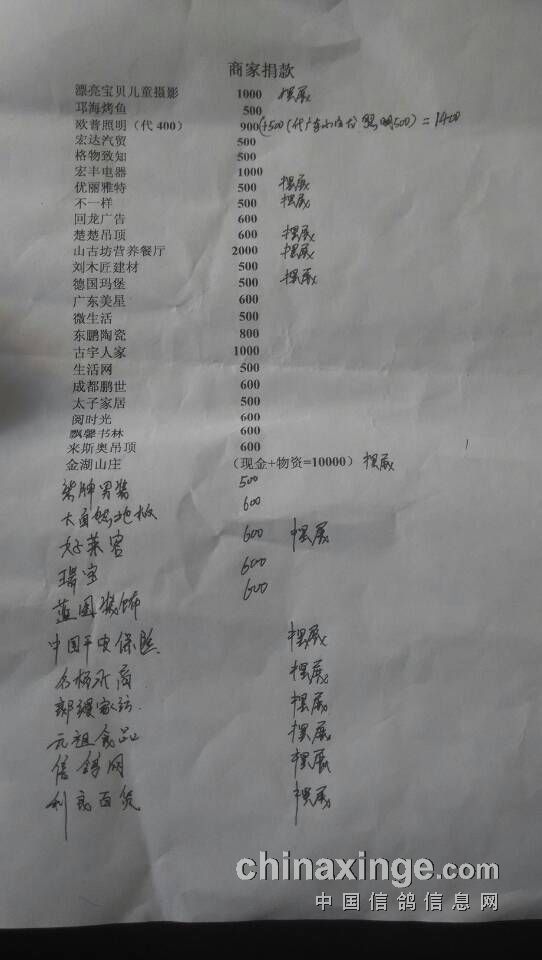 商家捐款
漂亮宝贝儿童摄影 1000 摆展
邛海烤鱼 500
欧普照明（代 400） 900(+500(代广东 照明500) = 1400
宏达汽贸 500
格物致知 500
宏丰电器 1000
优丽雅特 500 摆展
不一样 500 摆展
回龙广告 600
楚楚吊顶 600 摆展
山古坊营养餐厅 2000 摆展
刘木匠建材 500
德国玛堡 500 摆展
广东美星 600
微生活 500
东鹏陶瓷 800
古字人家 1000
生活网 500
成都鹏世 600
太子家居 500
阅时光 600
飘馨书林 600
米斯奥吊顶 600
金湖山庄 （现金+物资=10000） 摆展
柒牌男装 500
大自然地板 600
好莱客 600 摆展
瑞宝 600
蓝图装饰 600
中国平安保险 摆展
摆展
家访 摆展
元祖食品 摆展
信鸽网 摆展
利民百货 摆展
chinaxinge.com
中国信鸽信息网